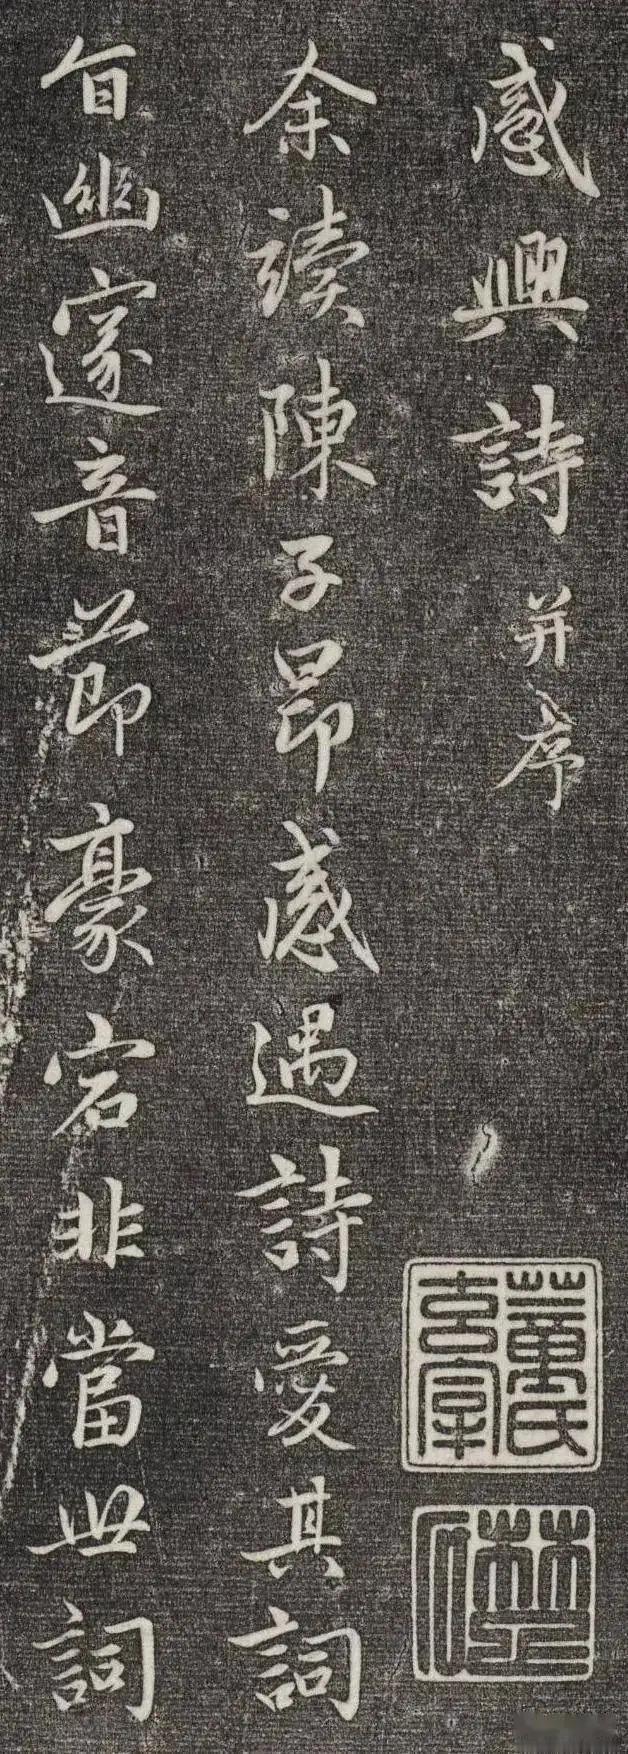 感興詩并序
余讀陳子昂感遇詩愛其詞
旨幽邃音節豪宕非當世詞